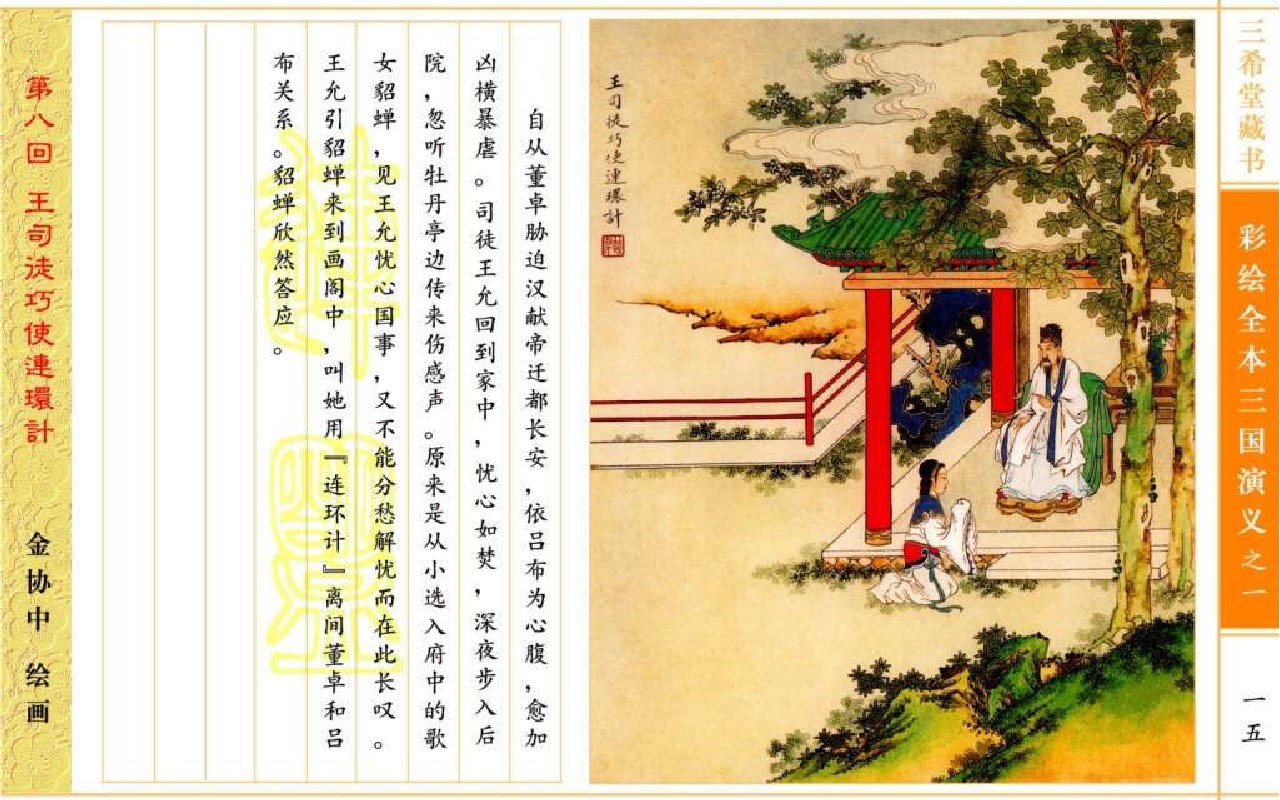 三希堂藏书
彩绘全本三国演义之一
一五
王司徒巧使連環計
自从董卓胁迫汉献帝迁都长安，依吕布为心腹，愈加
凶横暴虐。司徒王允回到家中，忧心如焚，深夜步入后
院，忽听牡丹亭边传来伤感声。原来是从小选入府中的歌
女貂蝉，见王允忧心国事，又不能分愁解忧而在此长叹。
王允引貂蝉来到画阁中，叫她用『连环计』离间董卓和吕
布关系。貂蝉欣然答应。
第八回 王司徒巧使連環計
金协中 绘画